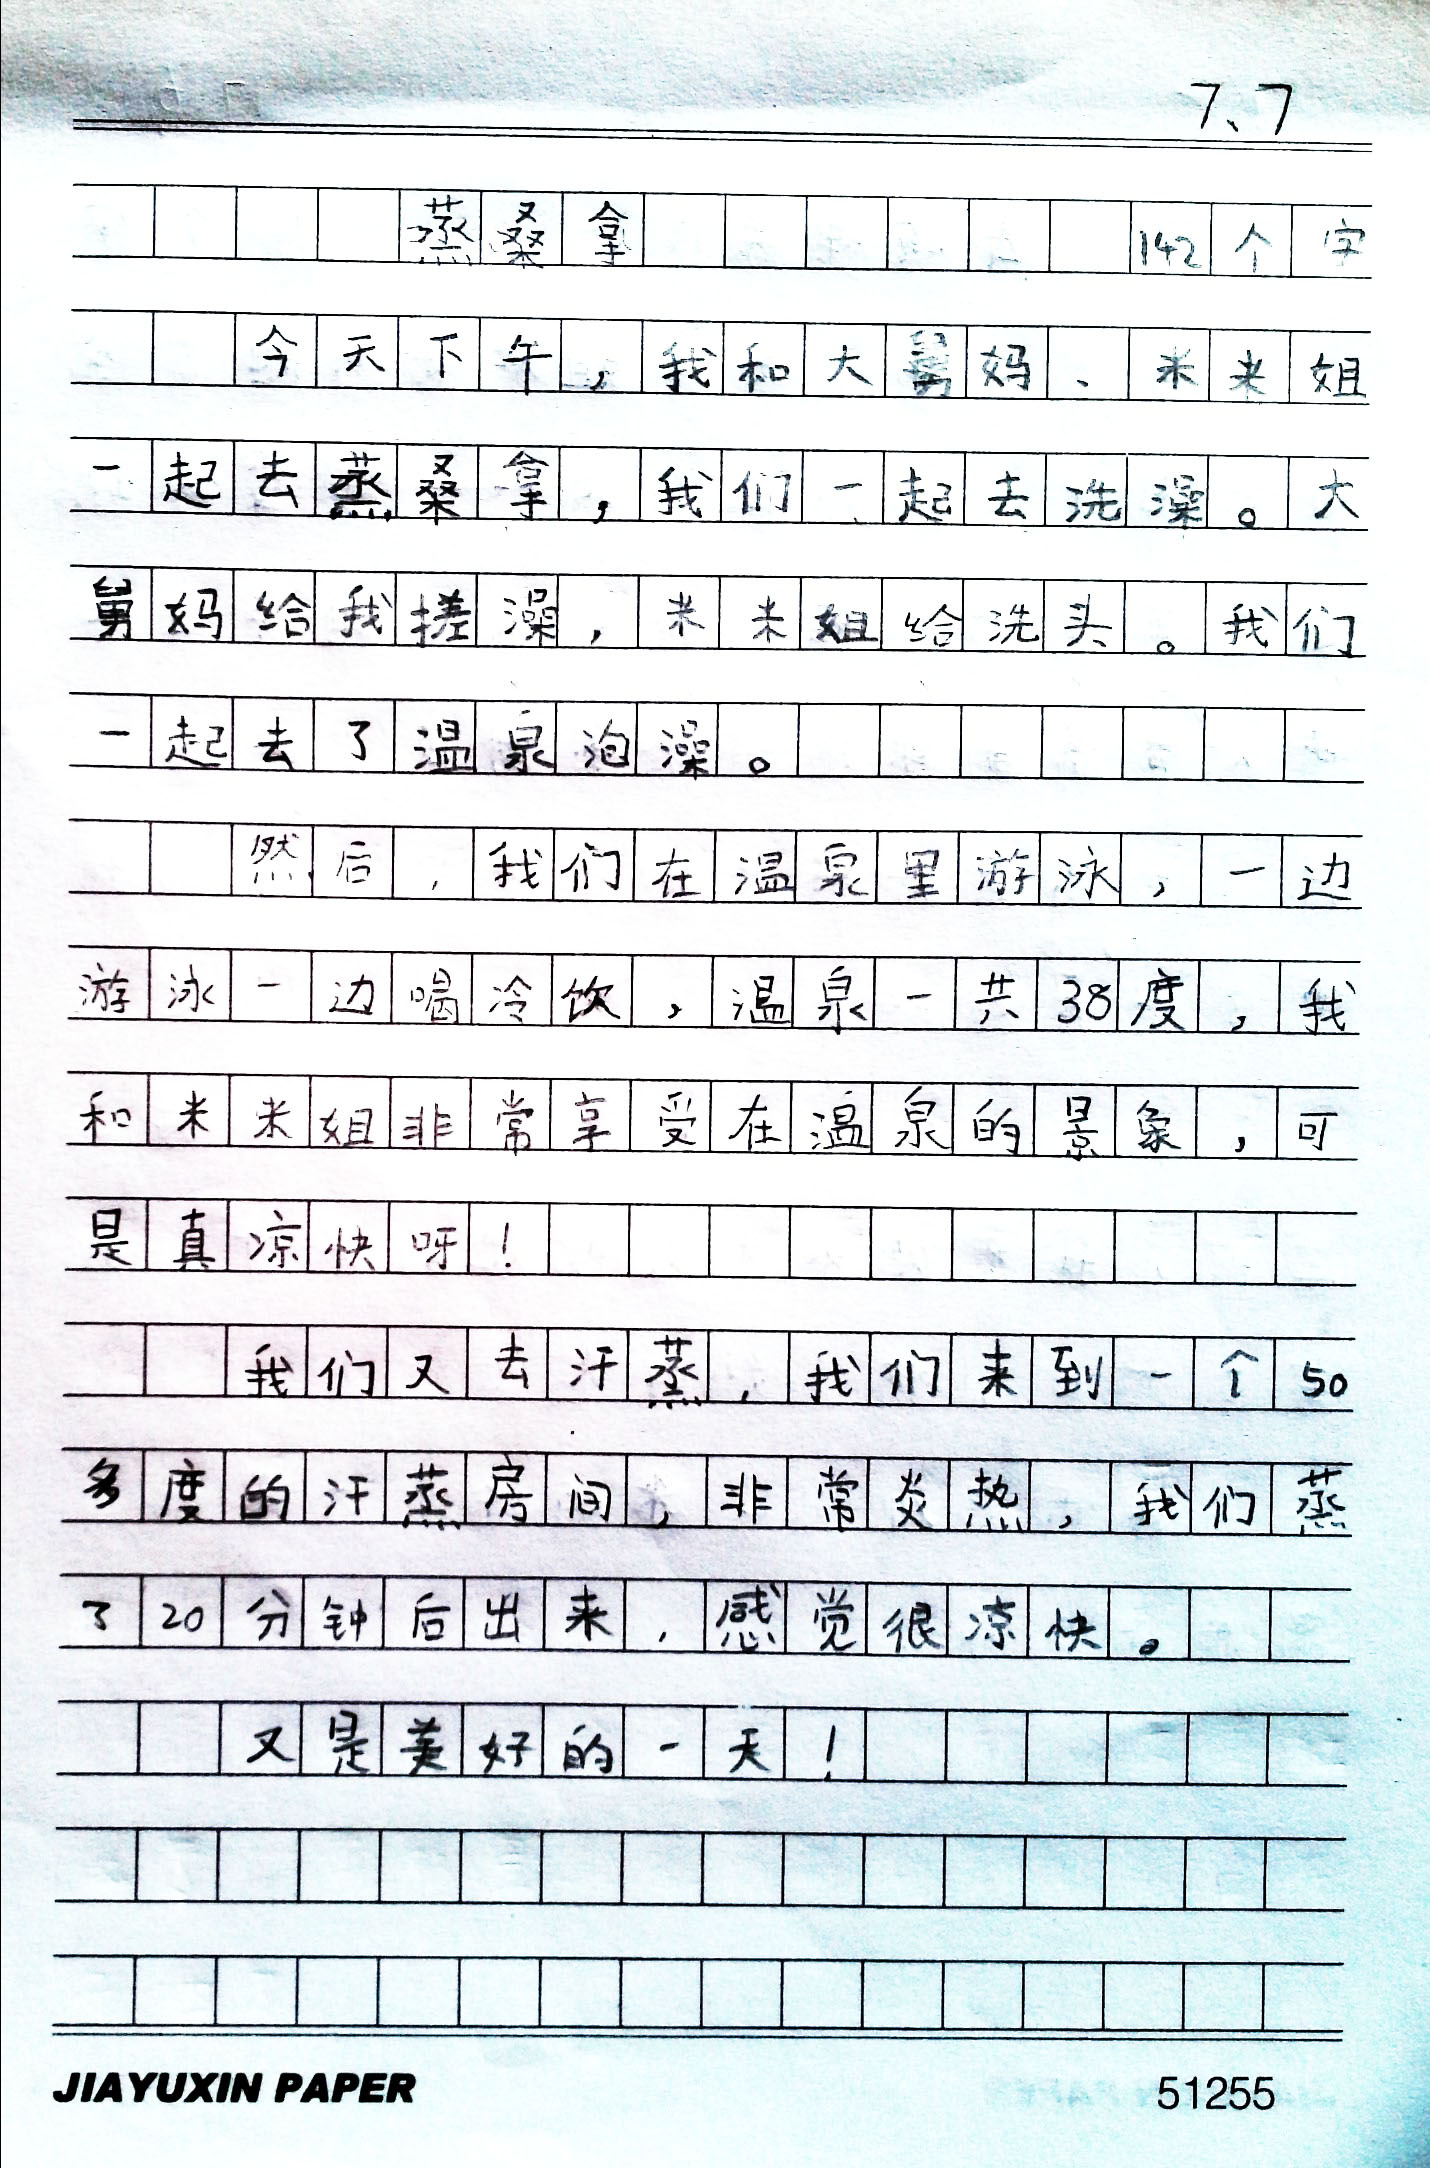 7、7
蒸桑拿 142个字
今天下午，我和大舅妈、米米姐
一起去蒸桑拿，我们一起去洗澡。大
舅妈给我搓澡，米米姐给洗头。我们
一起去了温泉泡澡。
然后，我们在温泉里游泳，一边
游泳一边喝冷饮，温泉一共38度，我
和米米姐非常享受在温泉的景象，可
是真凉快呀！
我们又去汗蒸，我们来到一个50
多度的汗蒸房间，非常炎热，我们蒸
了20分钟后出来，感觉很凉快。
又是美好的一天！
JIAYUXIN PAPER 51255